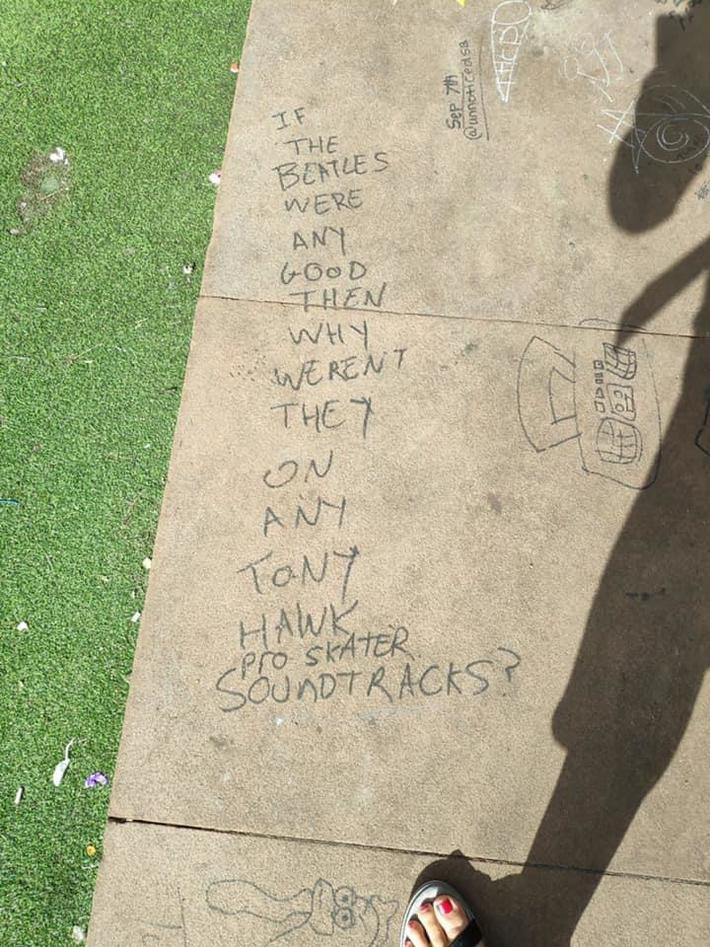 Sep 7th
@unnoticedsb
IF
THE
BEATLES
WERE
ANY
GOOD
THEN
WHY
WEREN'T
THEY
ON
ANY
TONY
HAWK
PRO SKATER
SOUNDTRACKS?